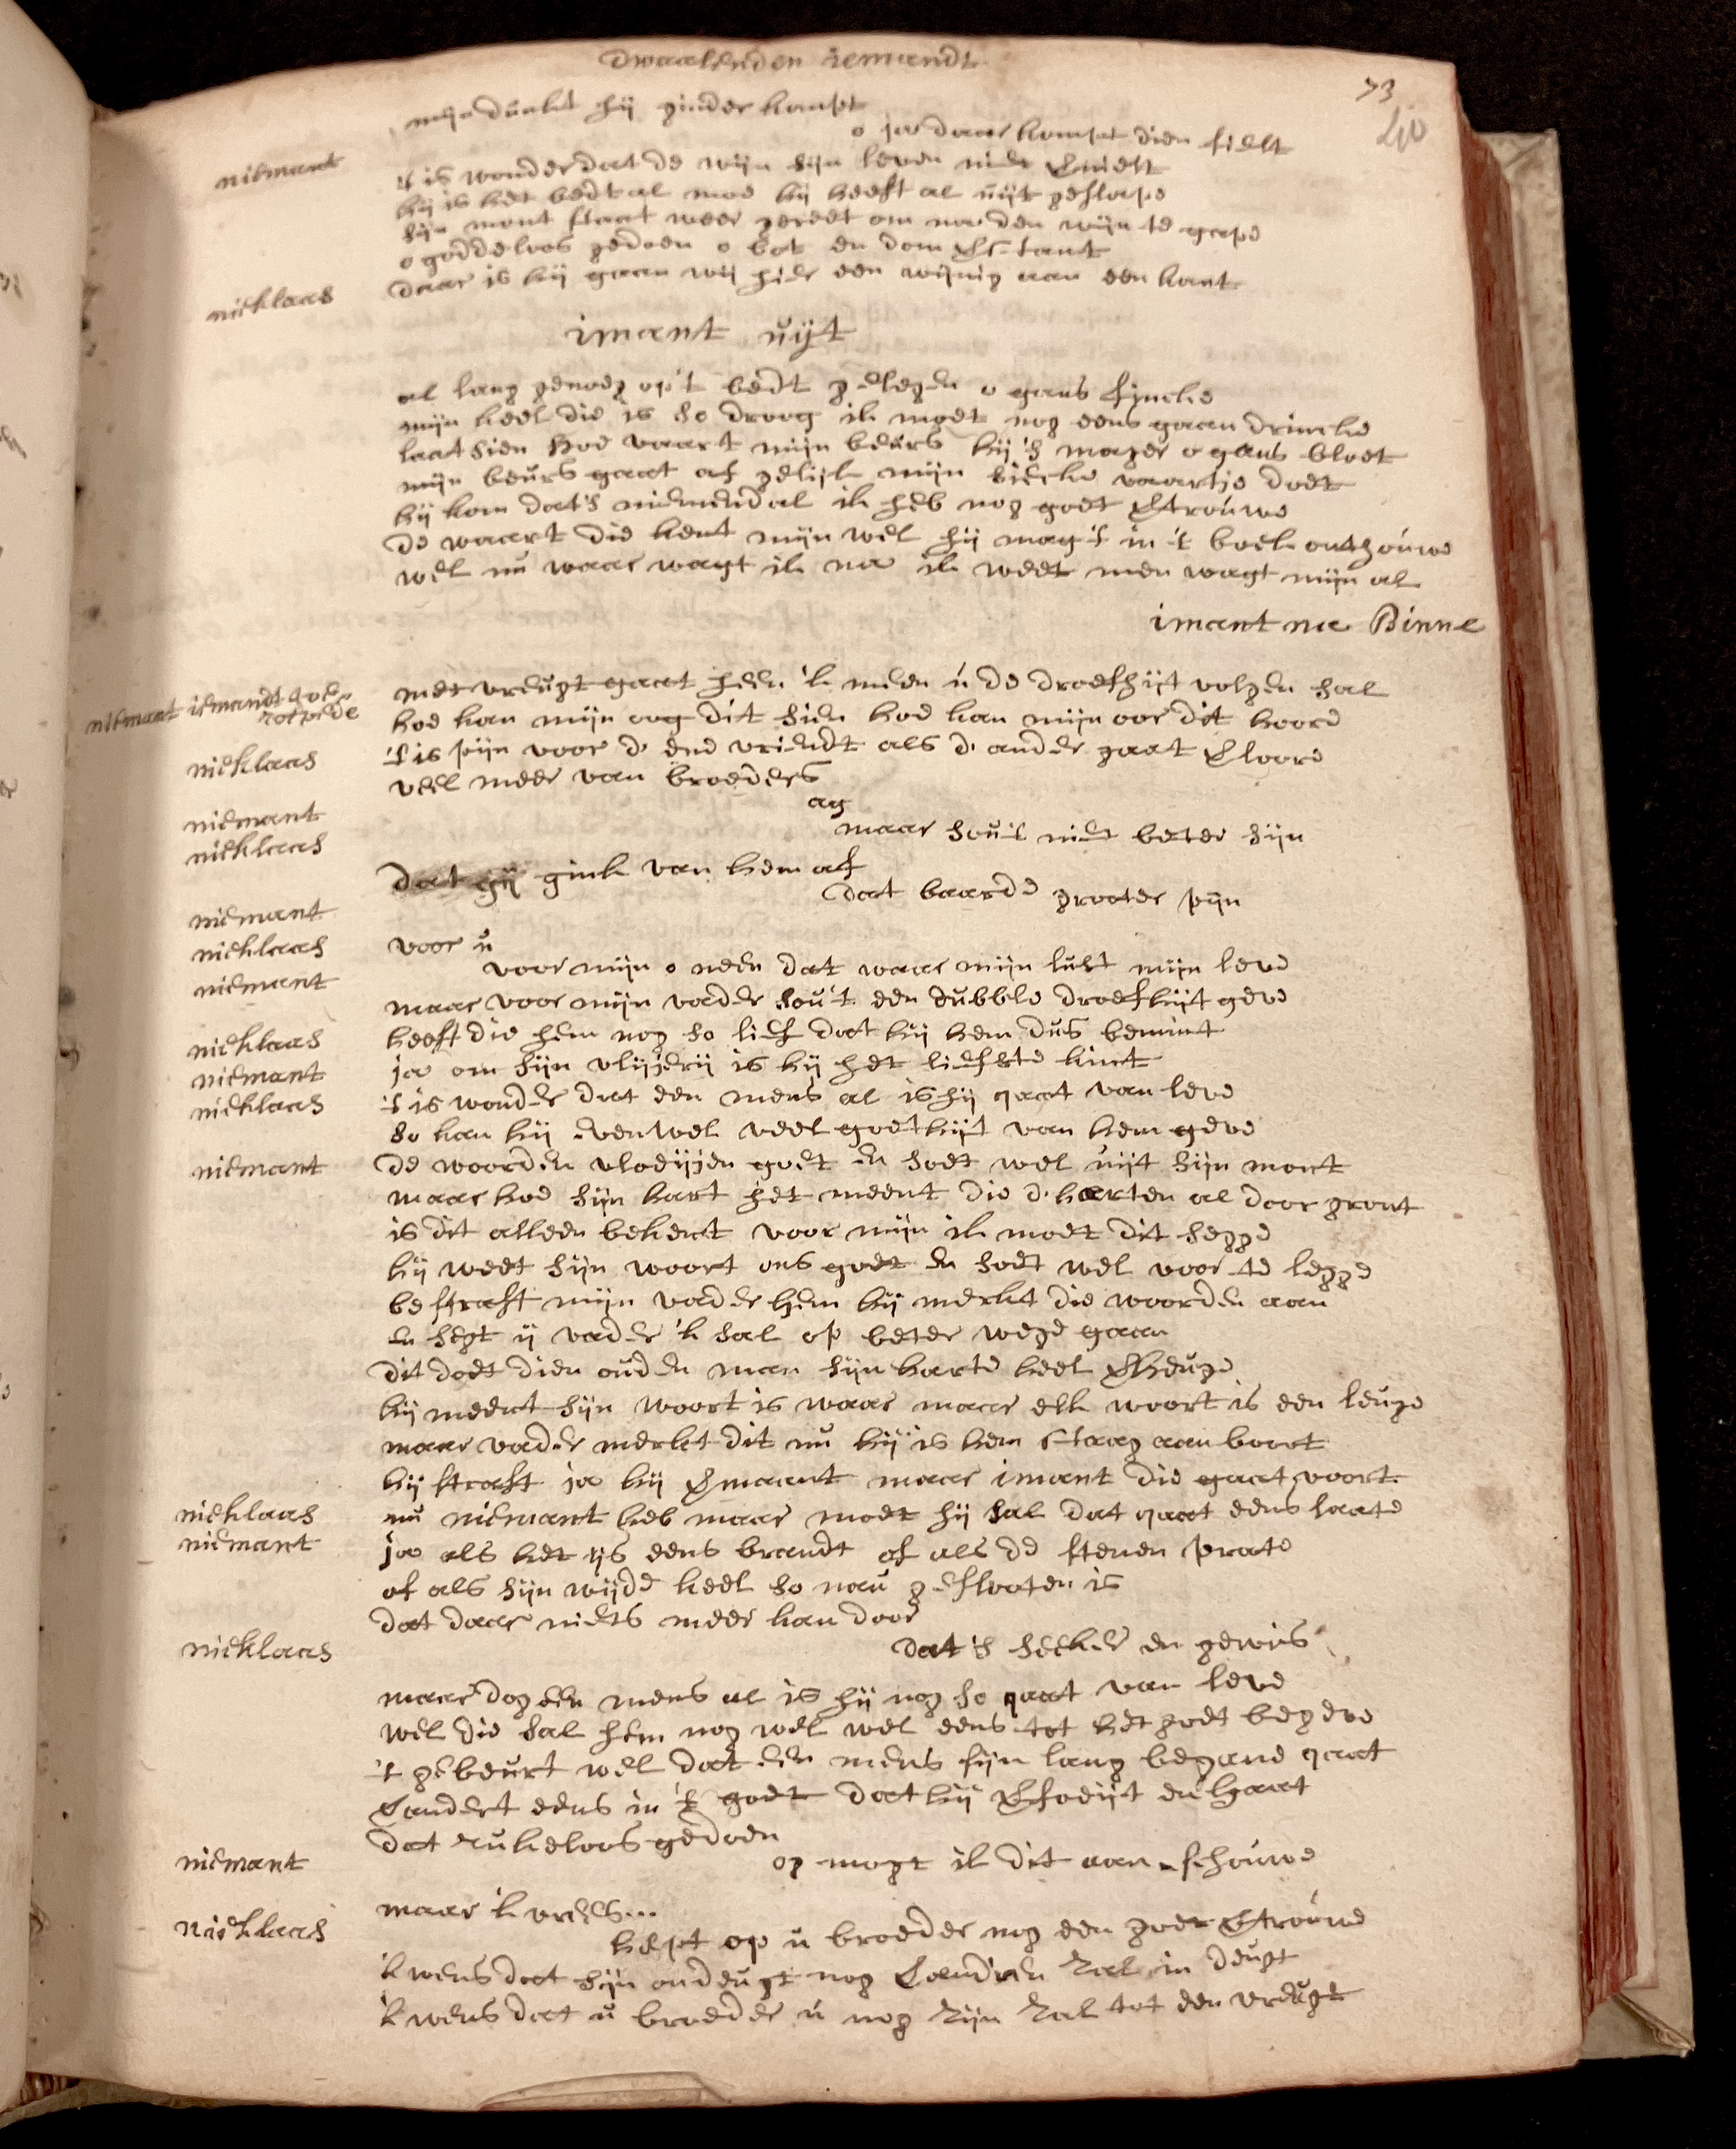 dwaalenden iemandt
73
40
mijn dunkt hij ginder kompt
o ja daar kompt dien fielt
niemant
't is wonder dat de wijn sijn leven niet vernielt
hij is het bedt al moe hij heeft al uijt geslape
sijn mont staat weer gereet om na den wijn te gape
o goddeloos gedoen o bot en dom verstant
nieklaas
daar is hij gaan wij hier een wijnig aan een kant
imant uijt
al lang genoeg op't bedt gelegen o gans finck
mijn keel die is so droog ik moet nog eens gaan drincke
laat sien hoe vaart mijn beurs hij 's mager o gans bloet
mijn beurs gaat af gelijk mijn siecke vaartje doet
hij kom dat's niemendal ik heb nog goet vertrouwe
de waart die kent mijn wel hij mag 't in 't boek onthouwe
wel nu waar wagt ik na ik weet men wagt mijn al
imant na Binne
niemant iemandt
met vreugt gaat heen 'k meen u de droefhijt volgen sal
hoe kan mijn oog dit sien hoe kan mijn oor dit hoore
nieklaas
't is pijn voor d' een vriendt als d' ander gaat verloore
veel meer van broeders
niemant
ag
nieklaas
maar sou't niet beter sijn
dat gij gink van hem af
dat baarde grooter pijn
niemant
nieklaas
voor u
niemant
voor mijn o neen dat waar mijn lust mijn leve
maar voor mijn vader sou't een dubble droefhijt geve
nieklaas
heeft die hem nog so lief dat hij hem dus bemint
niemant
ja om sijn vlijjerij is hij het liefste kint
nieklaas
't is wonder dat een mens al is hij quaat van leve
so kan hij evenwel veel goethijt van hem geve
niemant
de woorden vloeijjen goet en soet wel uijt sijn mont
maar hoe sijn hart het meent die d' harten al doorgront
is dit alleen bekent voor mijn ik moet dit segge
hij weet sijn woort ons goet en soet wel voor te legge
bestraft mijn vader hem hij merkt die woorden aan
en segt ij vader 'k sal op beter wege gaan
dit doet dien ouden man sijn harte heel verheuge
hij meent sijn woort is waar maar elk woort is een leuge
maar vader merkt dit nu hij is hem staag aan boort
hij straft ja hij vermaant maar imant die gaat voort
nieklaas
nu niemant heb maar moet hij sal dat quaat eens laate
niemant
ja als het ijs eens brandt of als de stenen prate
of als sijn wijde keel so nau geslooten is
dat daar niets meer kan door
nieklaas
dat's seeker en gewis
maar dog een mens al is hij nog so quaat van leve
wel die sal hem nog wel wel eens tot het goet begeve
't gebeurt wel dat een mens sijn lang begane quaat
verandert eens in 't goet dat hij verfoeijt en haat
dat rukeloos gedoen
niemant
og mogt ik dit aan schouwe
maar 'k vrees...
nieklaas
hept op u broeder nog een goet vertrouwe
'k wens dat sijn ondeugt nog veranderen zal in deugt
'k wens dat u broeder u nog zijn zal tot een vreugt